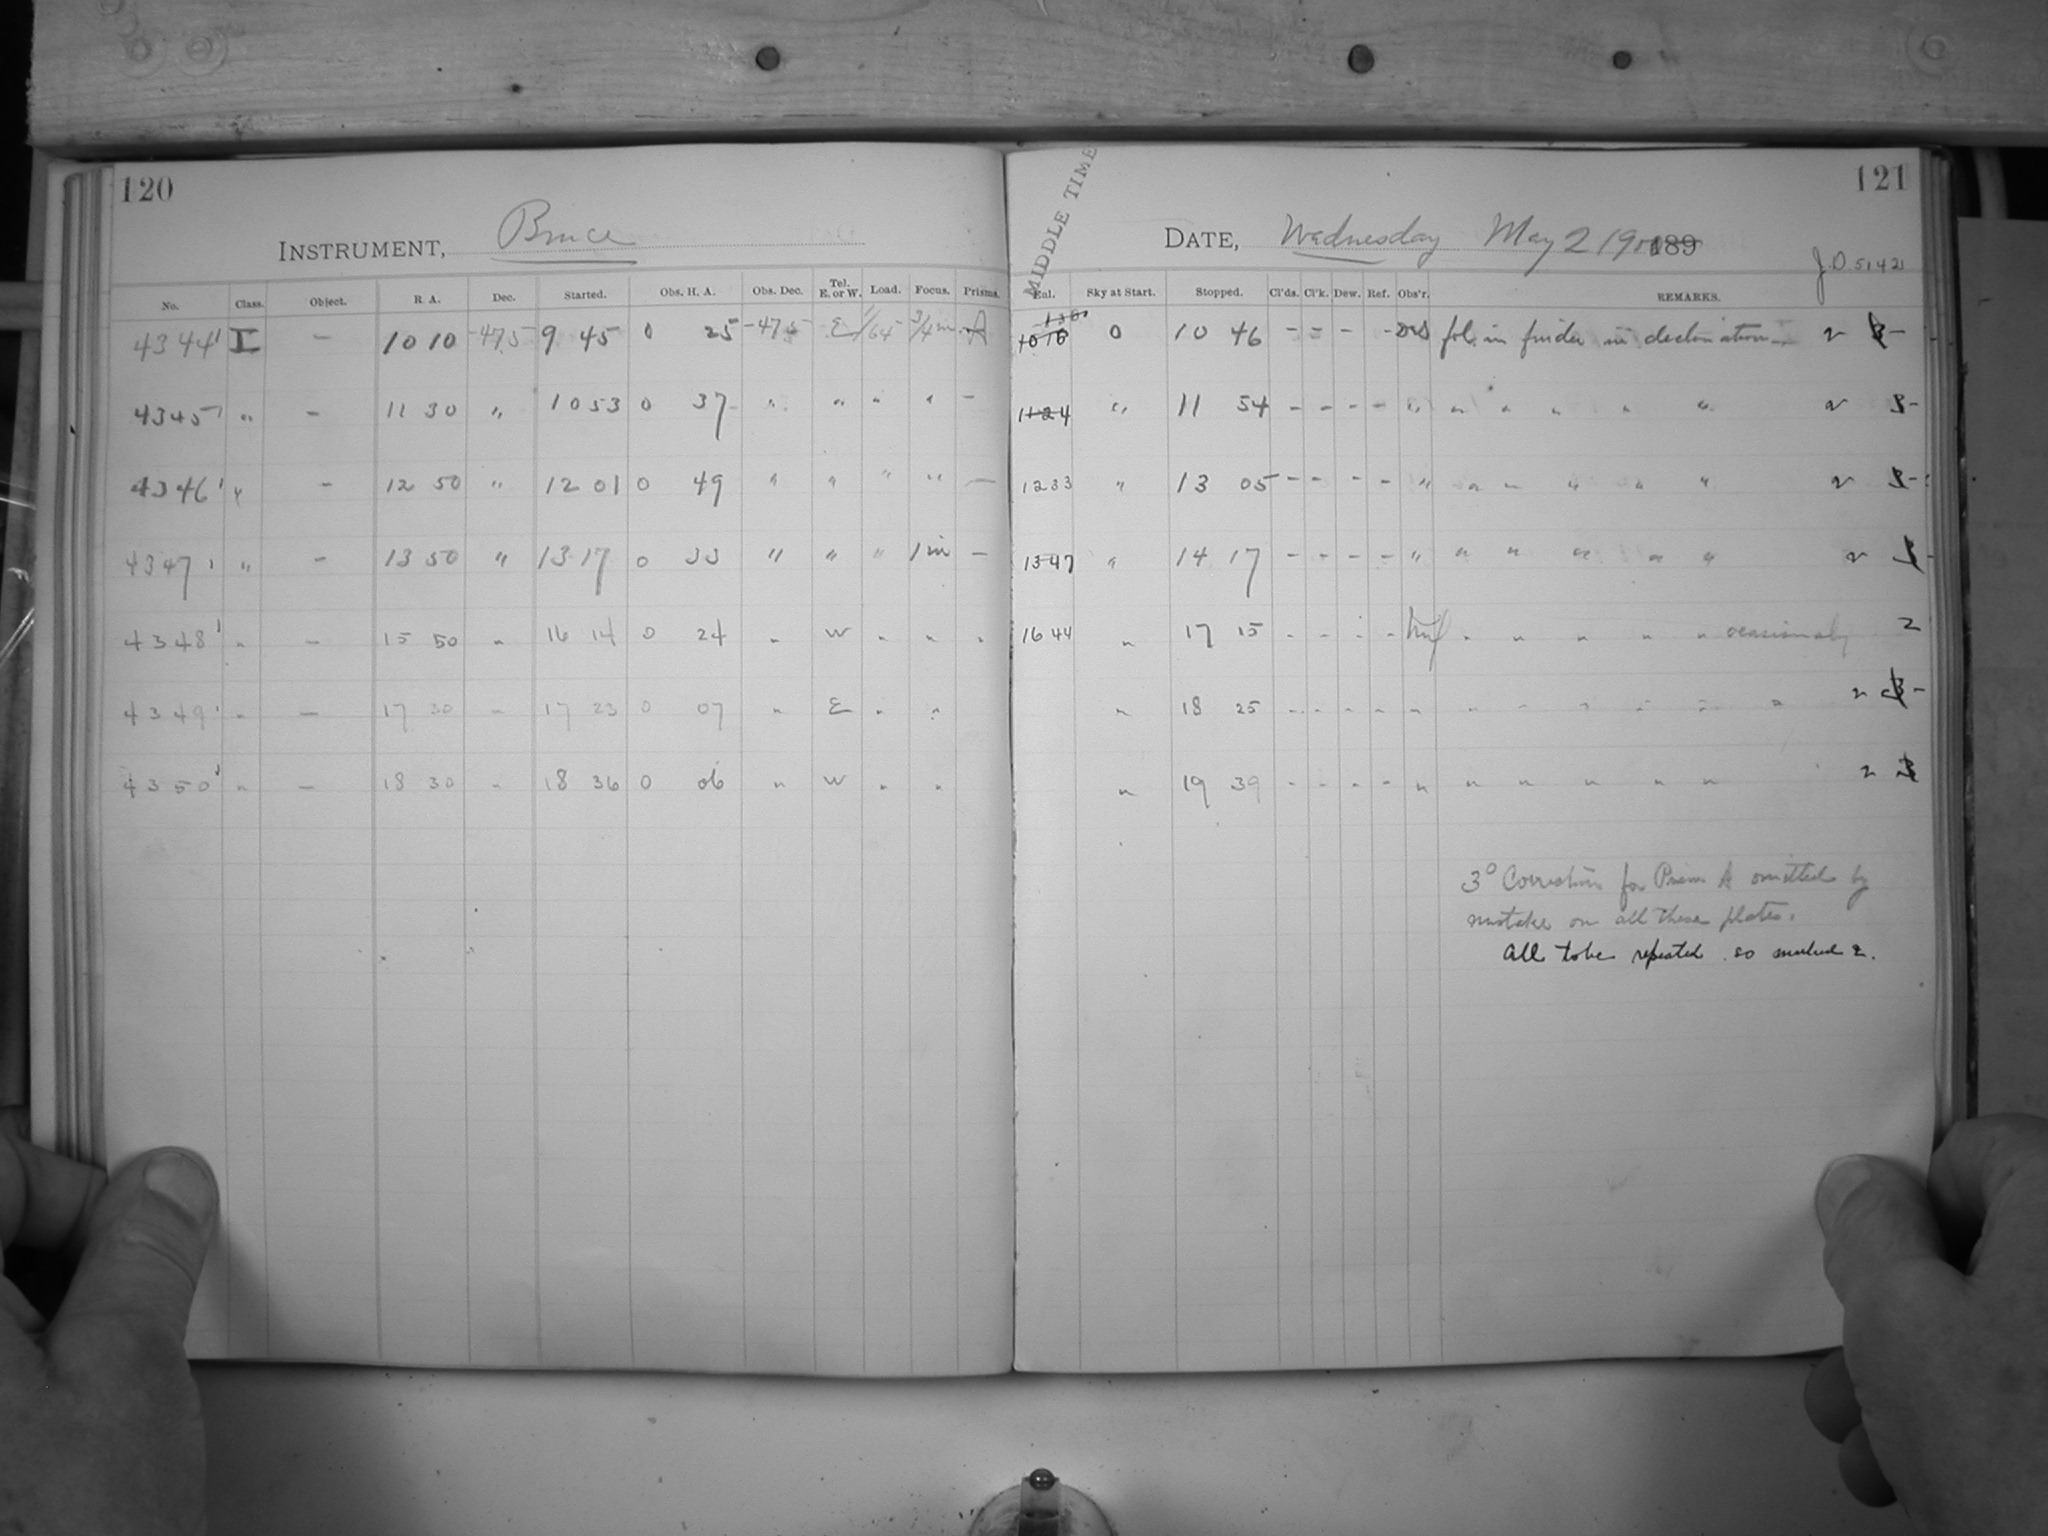 120
INSTRUMENT, Bruce
No. Class. Object. R A. Dec. Started. Obs. H. A. Obs. Dec. Tel. E. or W. Load. Focus. Prisms.
4344 I – 10 10 -47.5 9 45 0 25 -47.5 E 1/64 3/4 in A
4345 " – 11 30 " 10 53 0 37 " " " " –
4346 " – 12 50 " 12 01 0 49 " " " " –
4347 " – 13 50 " 13 17 0 33 " " " 1 in –
4348 " – 15 50 " 16 14 0 24 " W " " "
4349 " – 17 30 " 17 23 0 07 " E " "
4350 " – 18 30 " 18 36 0 06 " W " "
121
MIDDLE TIME
DATE, Wednesday May 2 1900 189
J.D. 51421
Enl. Sky at Start. Stopped. Cl'ds. Cl'k. Dew. Ref. Obs'r. REMARKS.
1016 0 10 46 – – – – fol. in finder in declination 2 3 –
1124 " 11 54 – – – – " " " " " " 2 3 –
1233 " 13 05 – – – – " " " " " " 2 3 –
1347 " 14 17 – – – – " " " " " " 2 3 –
1644 " 17 15 – – – – " " " " " ocasionaly 2
" 18 25 – – – – " " " " " " " 2 3 –
" 19 39 – – – – " " " " " " 2 3
3° Correction for Prism A omitted by
mistake on all these plates.
All to be repeated so marked 2.